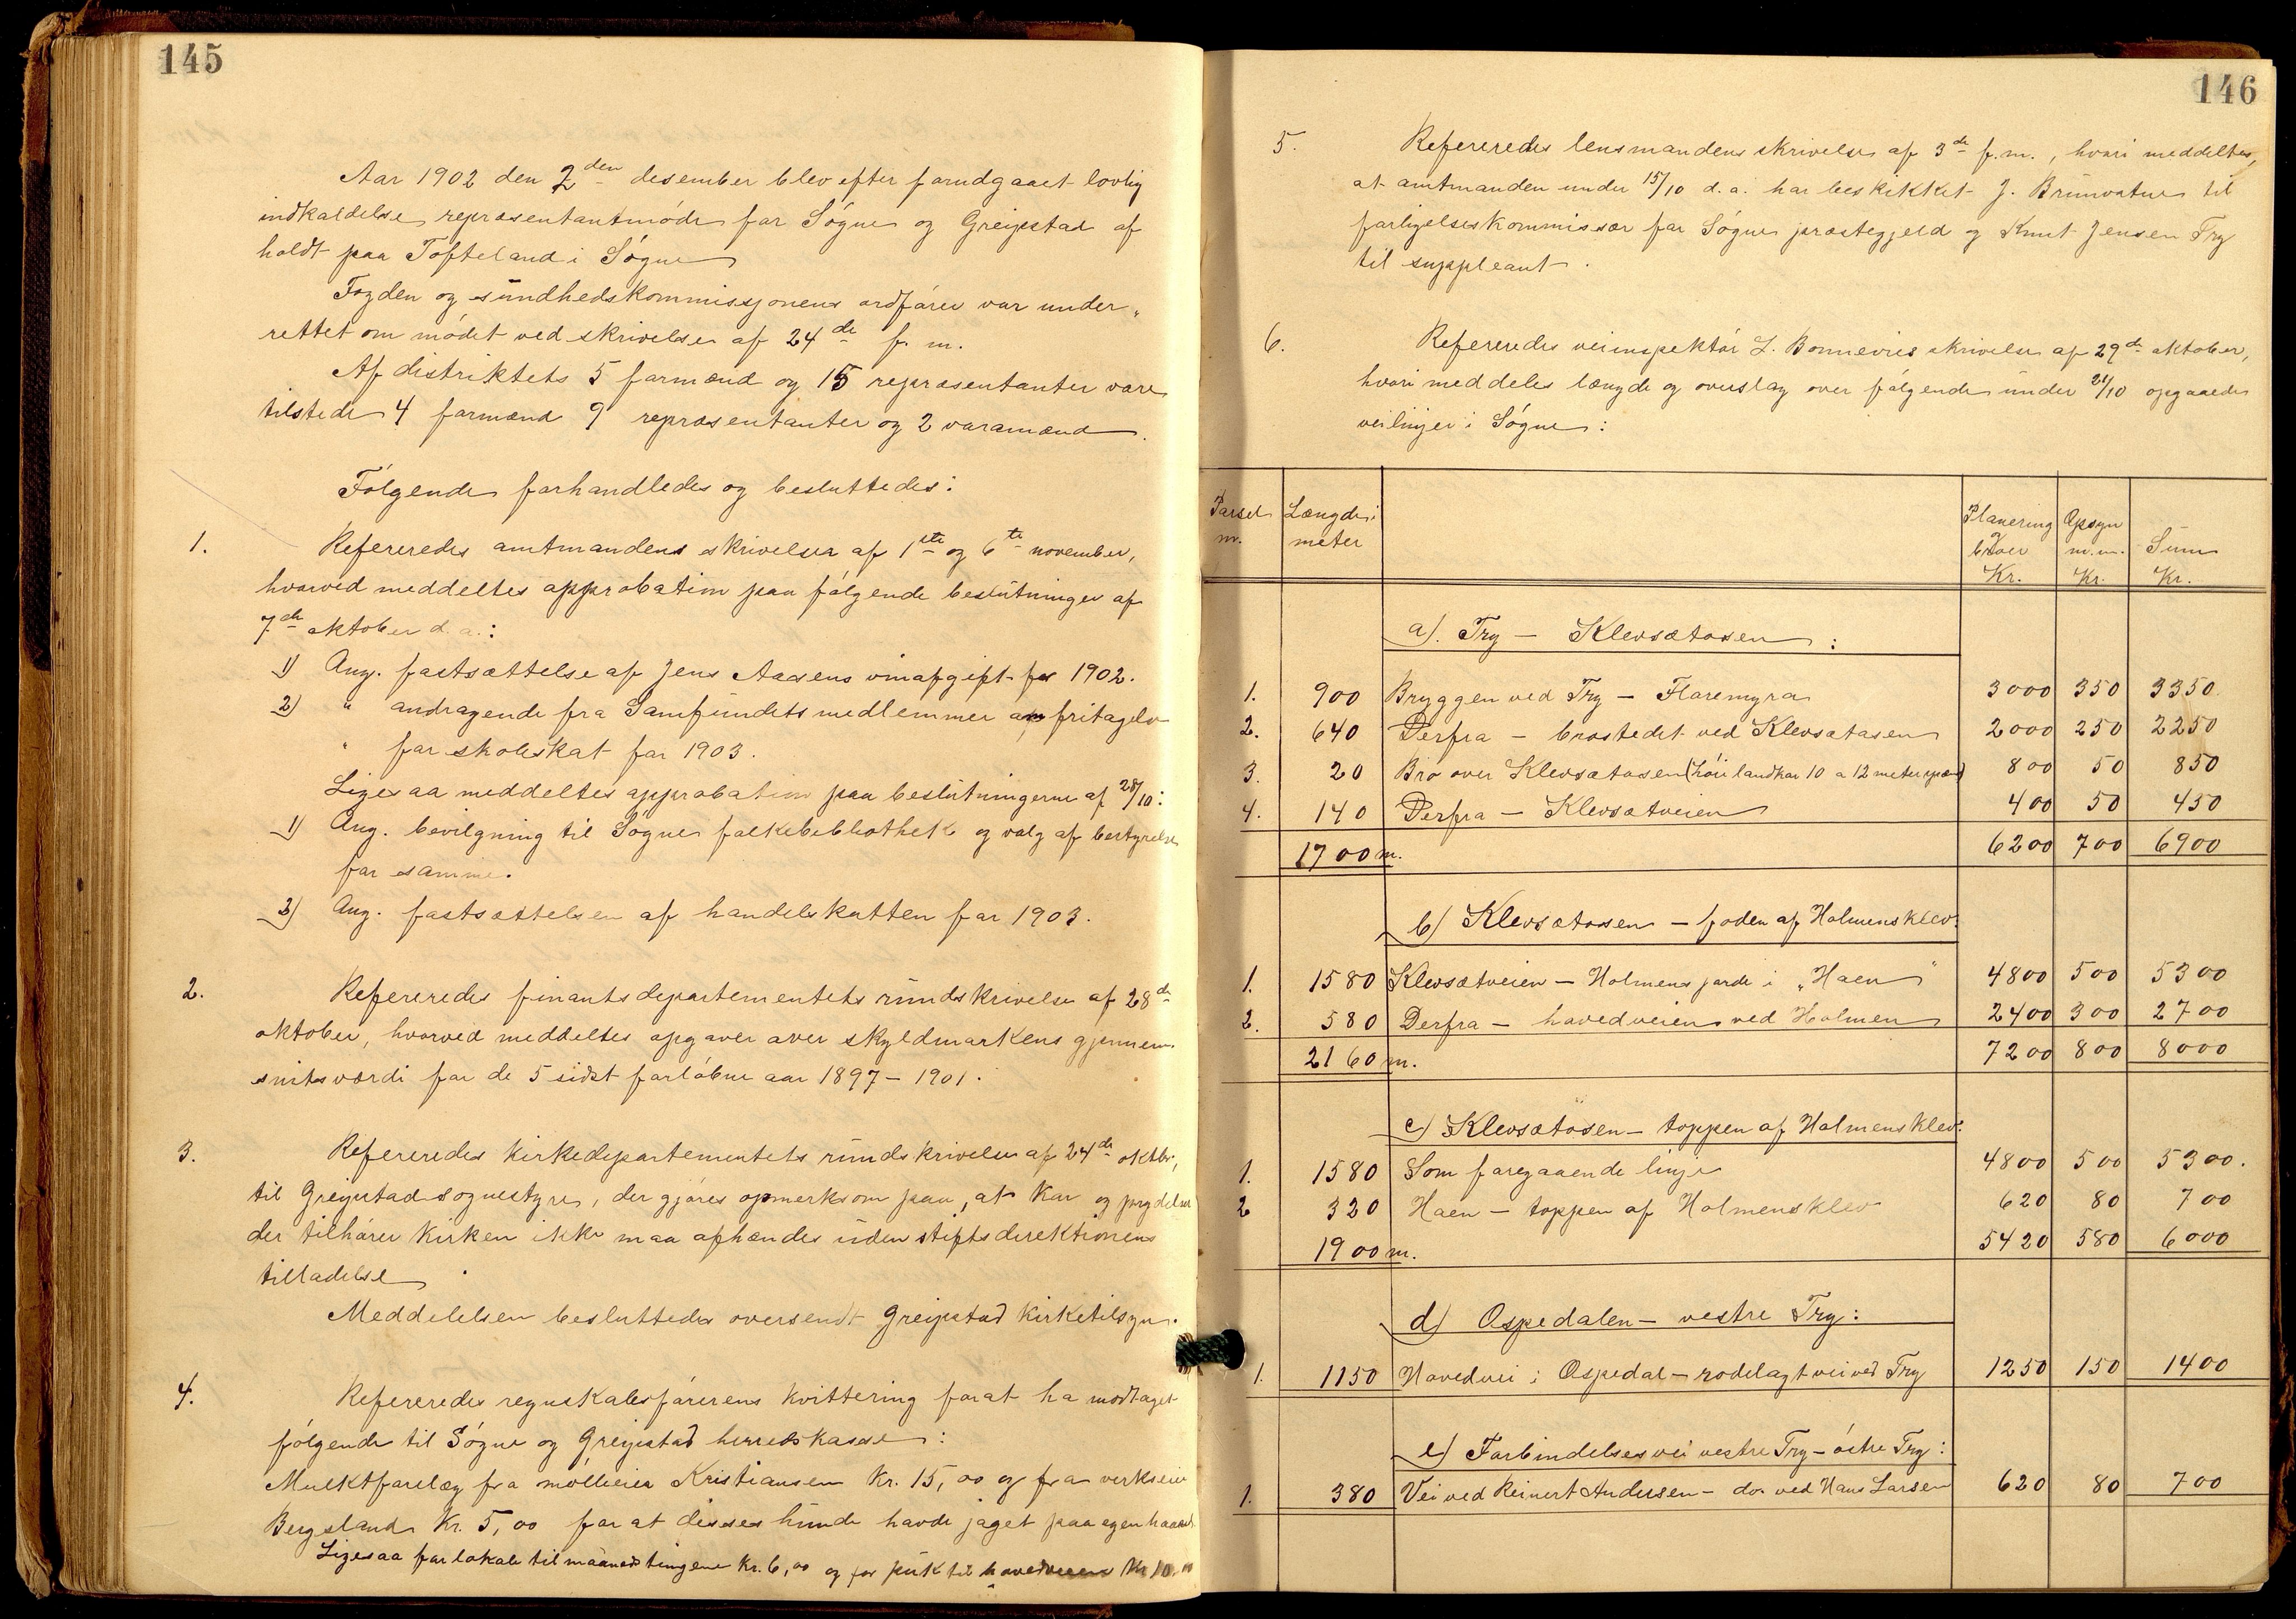 145
Aar 1902 den 2den desember blev efter forudgaaet lovlig
indkaldelse repræsentantmøde for Søgne og Greipstad af
holdt paa Tofteland i Søgne
Fogden og sundhedskommissjonens ordfører var under„
rettet om mødet ved skrivelse af 24de f. m.
Af distriktets 5 formænd og 15 repræsentanter vare
tilstede 4 formænd 9 repræsentanter og 2 varamænd.
Følgende forhandledes og besluttedes:
1. Refereredes amtmandens skrivelser af 1ste og 6te november,
hvorved meddeltes approbation paa følgende beslutninger af
7de oktober d. a.:
1) Ang. fastsættelse af Jens Aasens vinafgift for 1902.
2) " andragende fra Samfundets medlemmer om fritagelse
" for skoleskat for 1903.
Ligesaa meddeltes approbation paa beslutningerne af 28/10:
1) Ang. bevilgning til Søgne folkebibliothek og valg af bestyrelse
for samme.
2) Ang. fastsættelsen af handelskatten for 1903.
2. Refereredes finantsdepartementets rundskrivelse af 28de
oktober, hvorved meddeltes opgaver over skyldmarkens gjennem
snitsværdi for de 5 sidst forløbne aar 1897 – 1901.
3. Refereredes kirkedepartementets rundskrivelse af 24de oktbr,
til Greipstad sognestyre, der gjøres opmerksom paa, at kar og prydelser
der tilhører kirken ikke maa afhændes uden stiftsdirektionens
tilladelse.
Meddelelsen besluttedes oversendt Greipstad kirketilsyn.
4. Refereredes regnskabsførerens kvittering for at ha modtaget
følgende til Søgne og Greipstad herredskasse:
Mulktforelæg fra mølleier Kristiansen Kr. 15,00 og fra verkseier
Bergeland Kr. 5,00 for at disses hunde havde jaget paa egen haand.
Ligesaa for lokale til maanedstingene Kr. 6,00 og for puk til hovedveien Kr 10,00
146
5. Refereredes lensmandens skrivelse af 3de f. m., hvori meddeltes,
at amtmanden under 15/10 d. a. har beskikket J. Brunvatne til
forligelseskommissær for Søgne præstegjeld og Knut Jensen Try
til suppleant.
6. Refereredes veiinspektør L. Bonnevies skrivelse af 29de oktober,
hvori meddeles længde og overslag over følgende under 21/10 opgaaede
veilinjer i Søgne:
Parsel nr. Længde i meter Planering & broer Kr. Opsyn m.m. Kr. Sum Kr.
a). Try – Klevsætaasen:
1. 900 Bryggen ved Try – Flaremyra 3000 350 3350
2. 640 Derfra – brostedet ved Klevsætaasen 2000 250 2250
3. 20 Bro over Klevsætaasen (høie landkar 10 a 12 meter spænd) 800 50 850
4. 140 Derfra – Klevsætveien 400 50 450
1700 m. 6200 700 6900
b) Klevsætaasen – foden af Holmensklev.
1. 1580 Klevsætveien – Holmens jorde i „Haen" 4800 500 5300
2. 580 Derfra – hovedveien ved Holmen 2400 300 2700
2160 m. 7200 800 8000
c) Klevsætaasen – toppen af Holmensklev.
1. 1580 Som foregaaende linje 4800 500 5300.
2 320 Haen – toppen af Holmensklev 620 80 700
1900 m. 5420 580 6000
d) Ospedalen – vestre Try:
1. 1150 Hovedvei i Ospedal – rodelagt vei ved Try 1250 150 1400
e) Forbindelsesvei vestre Try – østre Try:
1. 380 Vei ved Reinert Andersen – do. ved Hans Larsen 620 80 700